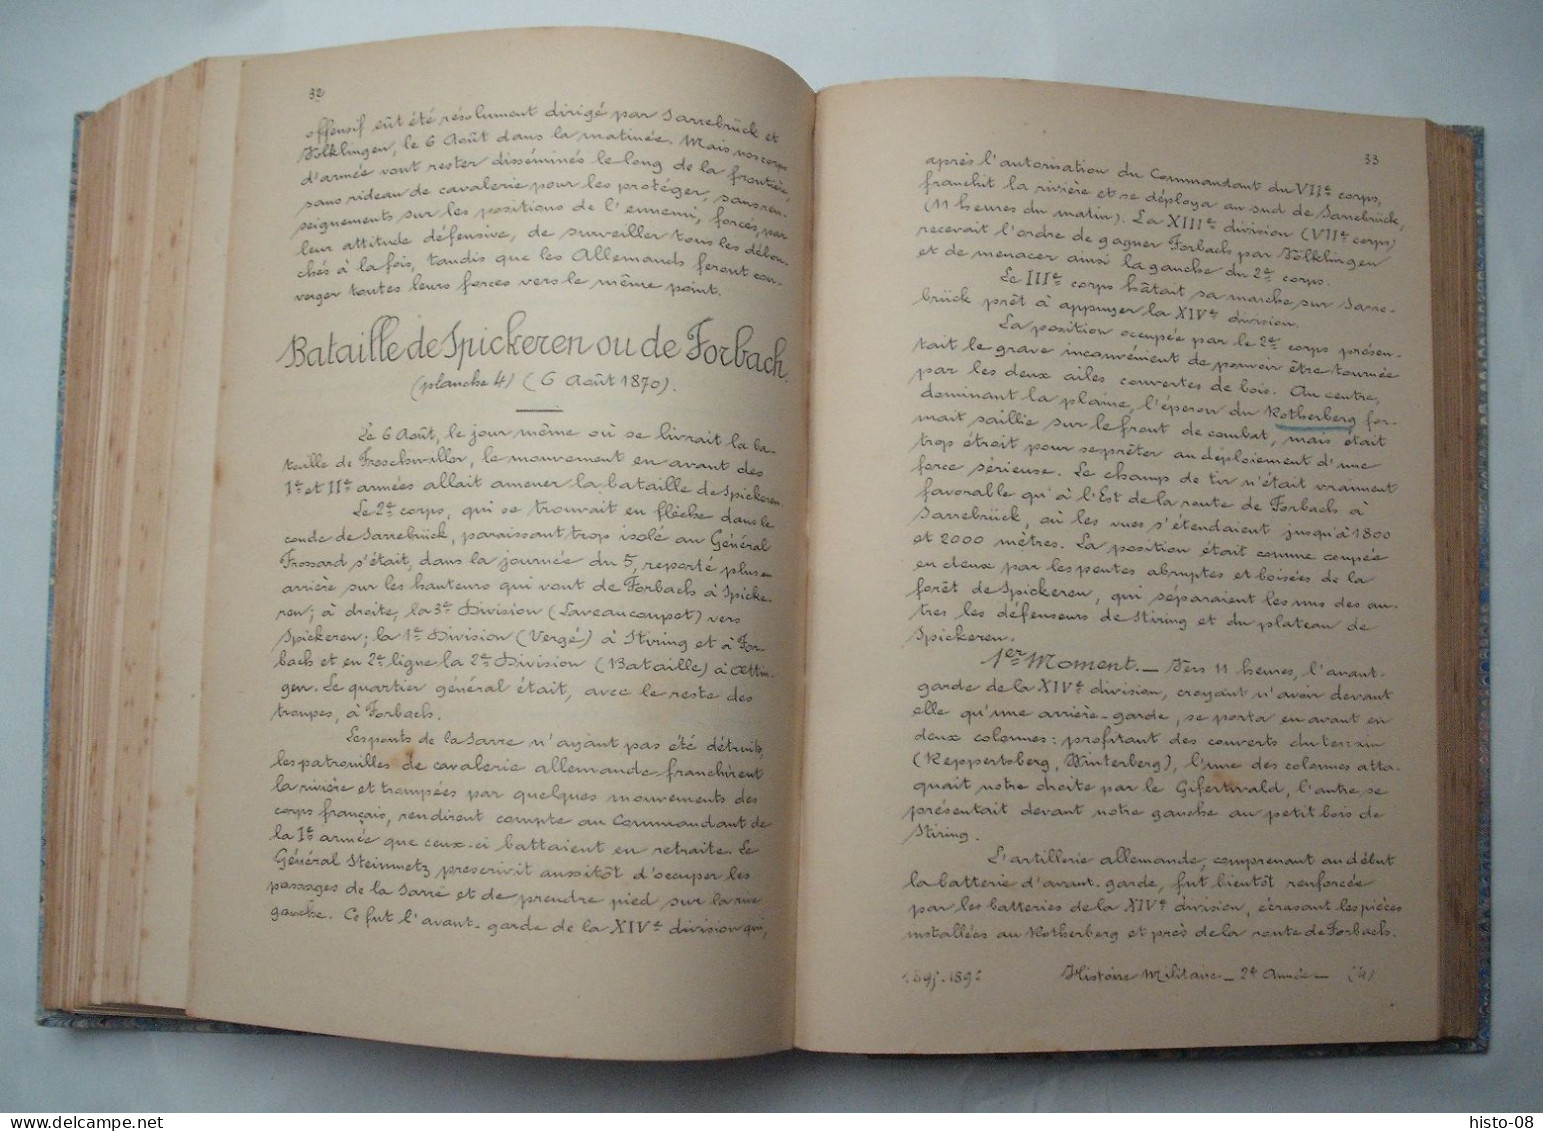 32
offensif eût été résolument dirigé par Sarrebrück et
Völklingen, le 6 Août dans la matinée. Mais nos corps
d'armée vont rester disséminés le long de la frontière,
sans rideau de cavalerie pour les protéger, sans ren-
seignements sur les positions de l'ennemi, forcés, par
leur attitude défensive, de surveiller tous les débou-
chés à la fois, tandis que les Allemands feront con-
verger toutes leurs forces vers le même point.
Bataille de Spickeren ou de Forbach.
(planche 4) (6 Août 1870).
Le 6 Août, le jour même où se livrait la ba-
taille de Froschwiller, le mouvement en avant des
Ie et IIe armées allait amener la bataille de Spickeren.
Le 2e corps, qui se trouvait en flèche dans le
coude de Sarrebrück, paraissant trop isolé au Général
Frossard s'était, dans la journée du 5, reporté plus en
arrière sur les hauteurs qui vont de Forbach à Spicke-
ren; à droite, la 3e Division (Laveaucoupet) vers
Spickeren; la 1e Division (Vergé) à Stiring et à For-
bach et en 2e ligne la 2e Division (Bataille) à Œttin-
gen. Le quartier général était, avec le reste des
troupes, à Forbach.
Les ponts de la Sarre n'ayant pas été détruits,
les patrouilles de cavalerie allemande franchirent
la rivière et trompées par quelques mouvements des
corps français, rendirent compte au Commandant de
la Ie armée que ceux-ci battaient en retraite. Le
Général Steinmetz prescrivit aussitôt d'occuper les
passages de la Sarre et de prendre pied sur la rive
gauche. Ce fut l'avant-garde de la XIVe division qui,
33
après l'autorisation du Commandant du VIIe corps,
franchit la rivière et se déploya au sud de Sarrebrück,
(11 heures du matin). La XIIIe division (VIIe corps)
recevait l'ordre de gagner Forbach par Völklingen
et de menacer ainsi la gauche du 2e corps.
Le IIIe corps hâtait sa marche sur Sarre-
brück prêt à appuyer la XIVe division.
La position occupée par le 2e corps présen-
tait le grave inconvénient de pouvoir être tournée
par les deux ailes couvertes de bois. Au centre,
dominant la plaine, l'éperon du Rotherberg for-
mait saillie sur le front de combat, mais était
trop étroit pour se prêter au déploiement d'une
force sérieuse. Le champs de tir n'était vraiment
favorable qu'à l'Est de la route de Forbach à
Sarrebrück, où les vues s'étendaient jusqu'à 1800
et 2000 mètres. La position était comme coupée
en deux par les pentes abruptes et boisées de la
forêt de Spickeren, qui séparaient les uns des au-
tres les défenseurs de Stiring et du plateau de
Spickeren.
1er Moment._ Vers 11 heures, l'avant-
garde de la XIVe division, croyant n'avoir devant
elle qu'une arrière-garde, se porta en avant en
deux colonnes: profitant des couverts du terrain
(Reppertsberg, Winterberg), l'une des colonnes atta-
quait notre droite par le Gifertwald, l'autre se
présentait devant notre gauche au petit bois de
Stiring.
L'artillerie allemande, comprenant au début
la batterie d'avant-garde, fut bientôt renforcée
par les batteries de la XIVe division, écrasant les pièces
installées au Rotherberg et près de la route de Forbach.
Histoire Militaire _ 2e Année _ (4)
histo-08